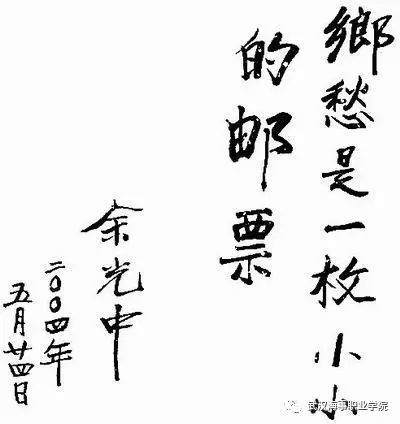 鄉愁是一枚小小
的邮票
余光中
二〇〇四年
五月廿四日
武汉海事职业学院